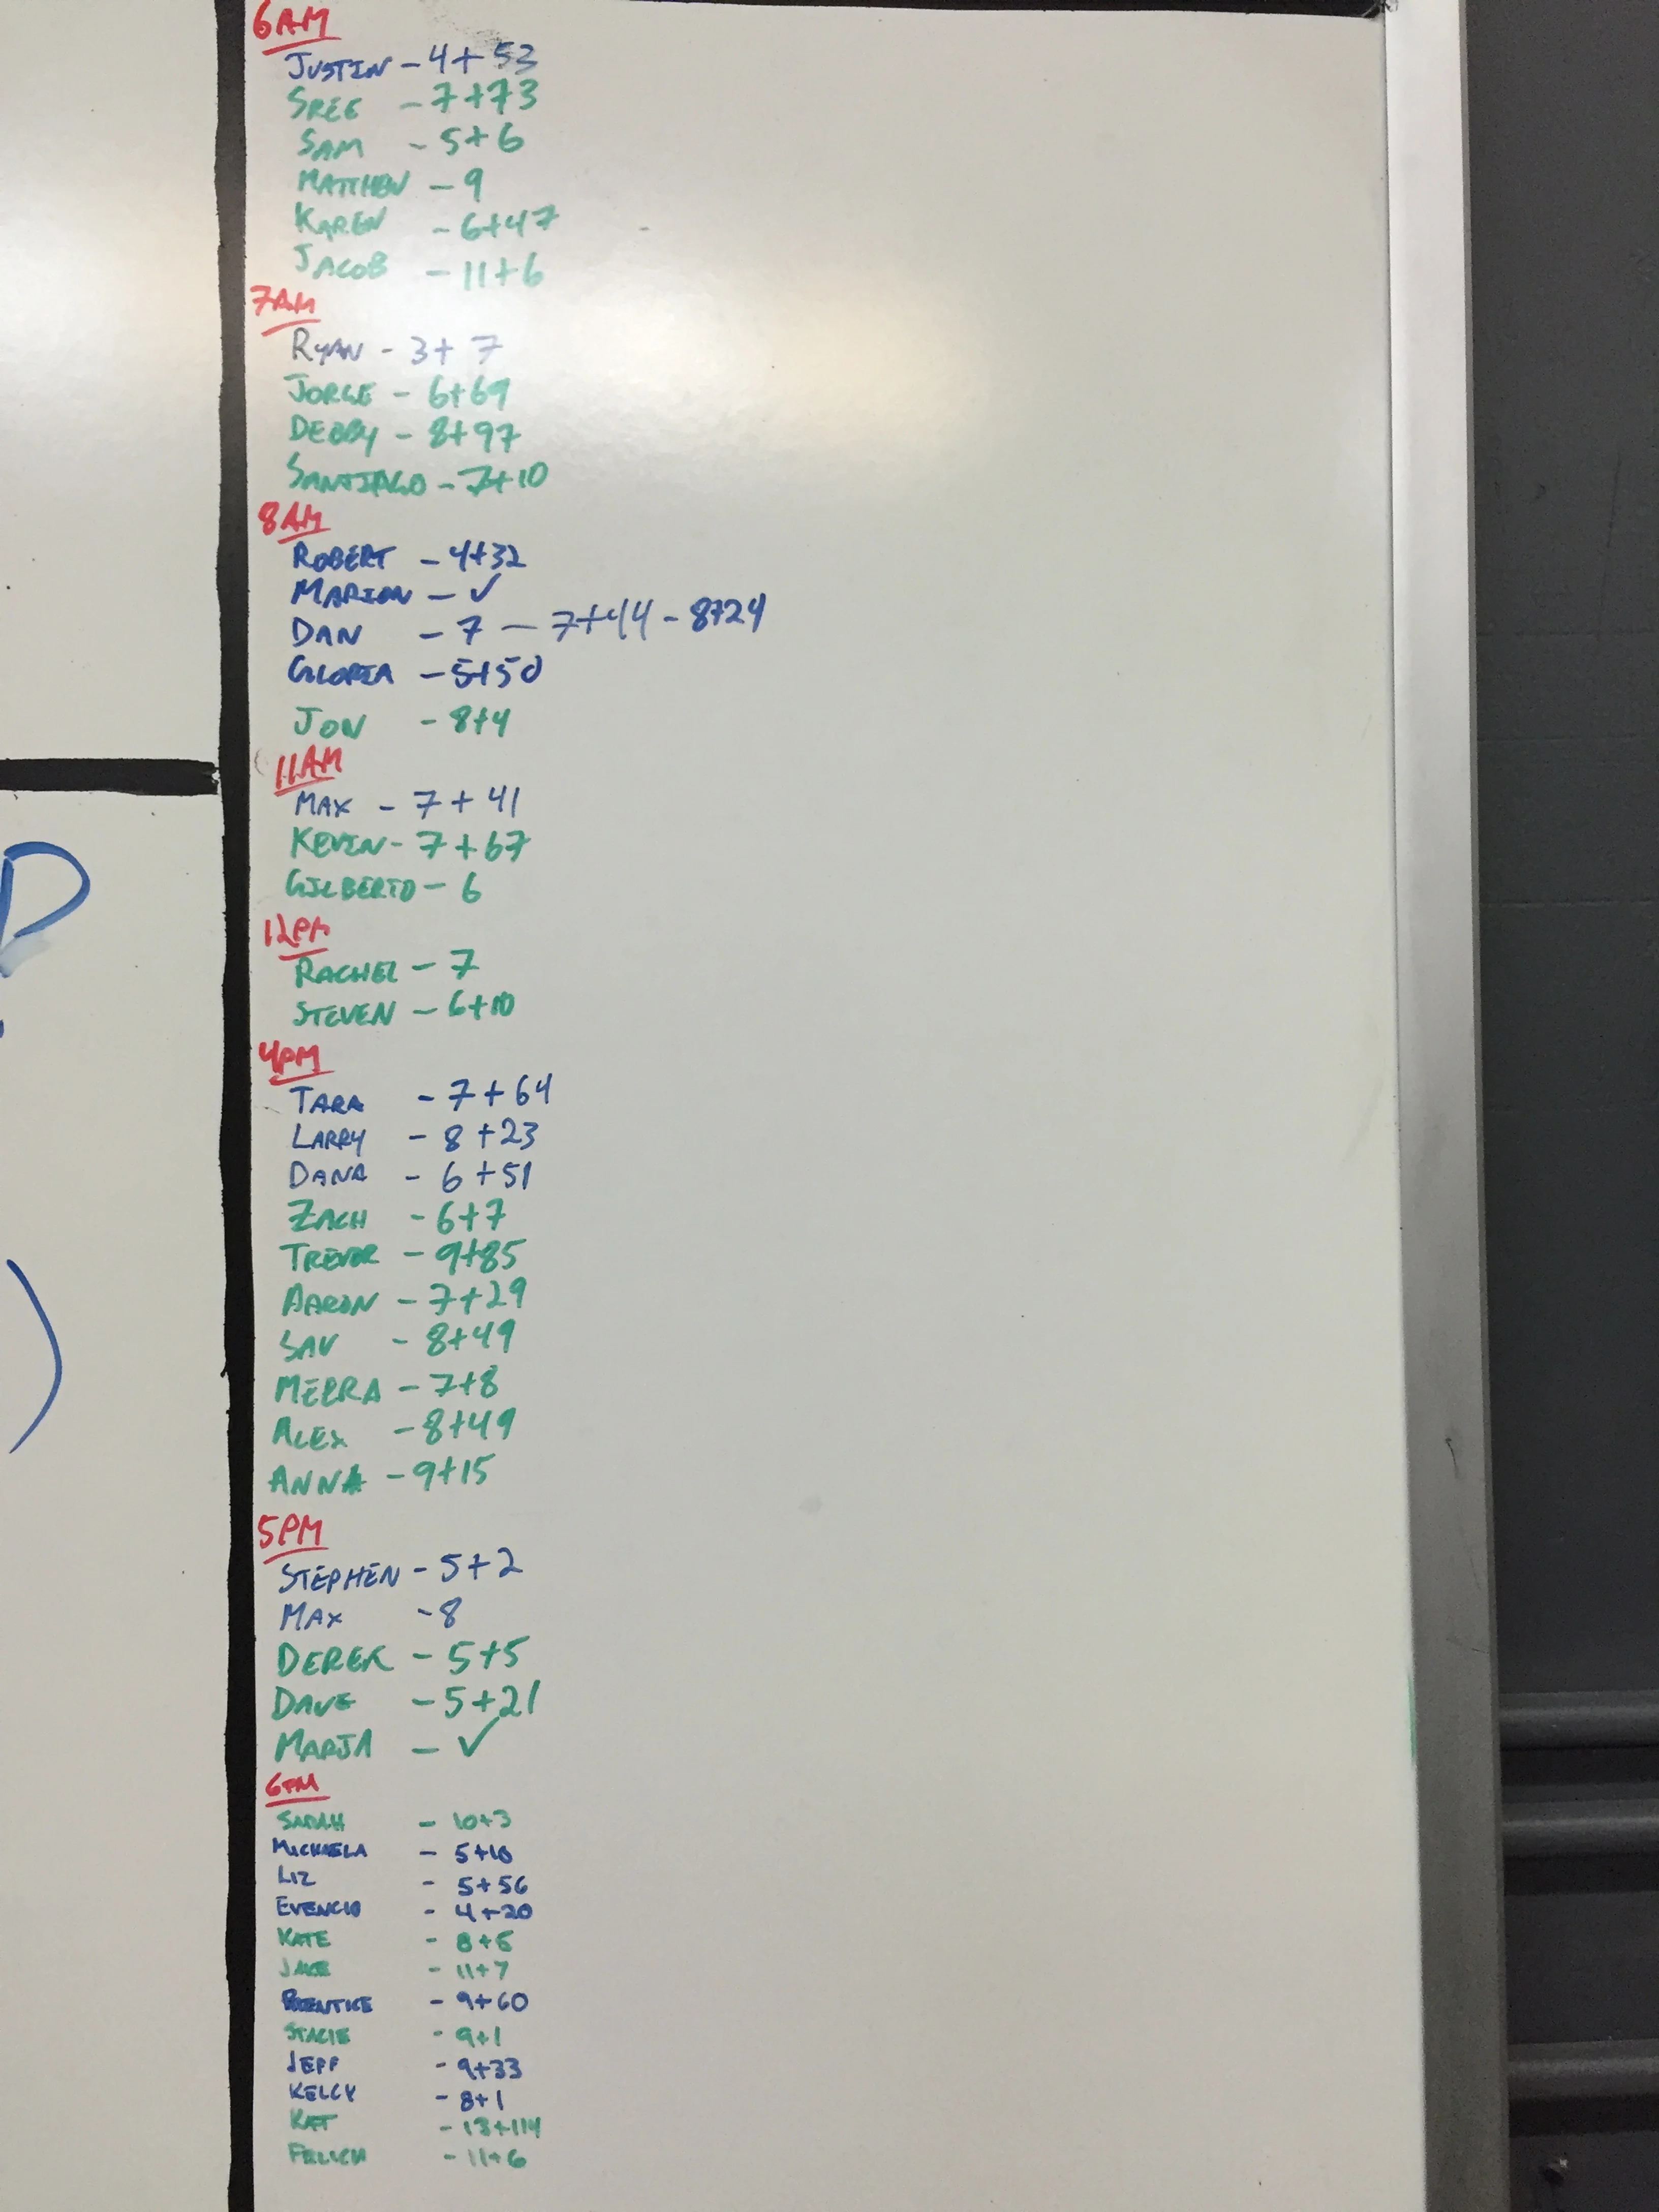 6AM
JUSTIN - 4+53
SREE - 7+73
SAM - 5+6
MATTHEW - 9
KAREN - 6+47
JACOB - 11+6
7AM
RYAN - 3+7
JORGE - 6+69
DEBBY - 8+97
SANTIAGO - 7+10
8AM
ROBERT - 4+32
MARION - ✓
DAN - 7 - 7+44 - 8+24
GLORIA - 5+50
JON - 8+4
11AM
MAX - 7+41
KEVIN - 7+67
GILBERTO - 6
12PM
RACHEL - 7
STEVEN - 6+10
4PM
TARA - 7+64
LARRY - 8+23
DANA - 6+51
ZACH - 6+7
TREVOR - 9+85
AARON - 7+29
SAV - 8+49
MEERA - 7+8
ALEX - 8+49
ANNA - 9+15
5PM
STEPHEN - 5+2
MAX - 8
DEREK - 5+5
DAVE - 5+21
MARJA - ✓
6PM
SARAH - 10+3
MICHAELA - 5+10
LIZ - 5+56
EVENCIO - 4+20
KATE - 8+5
JAKE - 11+7
PRENTICE - 9+60
STACIE - 9+1
JEFF - 9+33
KELCY - 8+1
KAT - 13+114
- 11+6